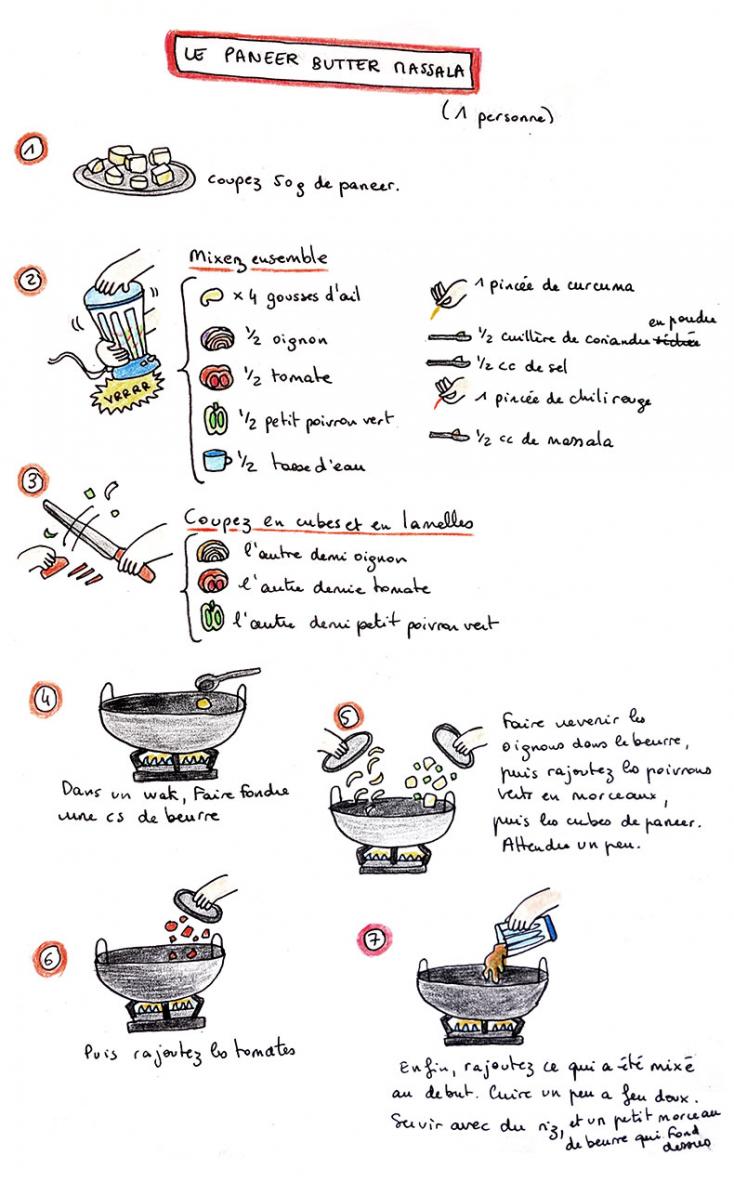 LE PANEER BUTTER MASSALA
(1 personne)
1
coupez 50g de paneer.
2
Mixez ensemble
VRRRR
x 4 gousses d'ail
1/2 oignon
1/2 tomate
1/2 petit poivron vert
1/2 tasse d'eau
1 pincée de curcuma
en poudre
1/2 cuillère de coriandre séchée
1/2 cc de sel
1 pincée de chili rouge
1/2 cc de massala
3
Coupez en cubes et en lamelles
l'autre demi oignon
l'autre demie tomate
l'autre demi petit poivron vert
4
Dans un wok, faire fondre
une cs de beurre
5
Faire revenir les
oignons dans le beurre,
puis rajoutez les poivrons
verts en morceaux,
puis les cubes de paneer.
Attendre un peu.
6
Puis rajoutez les tomates
7
Enfin, rajoutez ce qui a été mixé
au debut. Cuire un peu a feu doux.
Servir avec du riz, et un petit morceau
de beurre qui fond
dessus